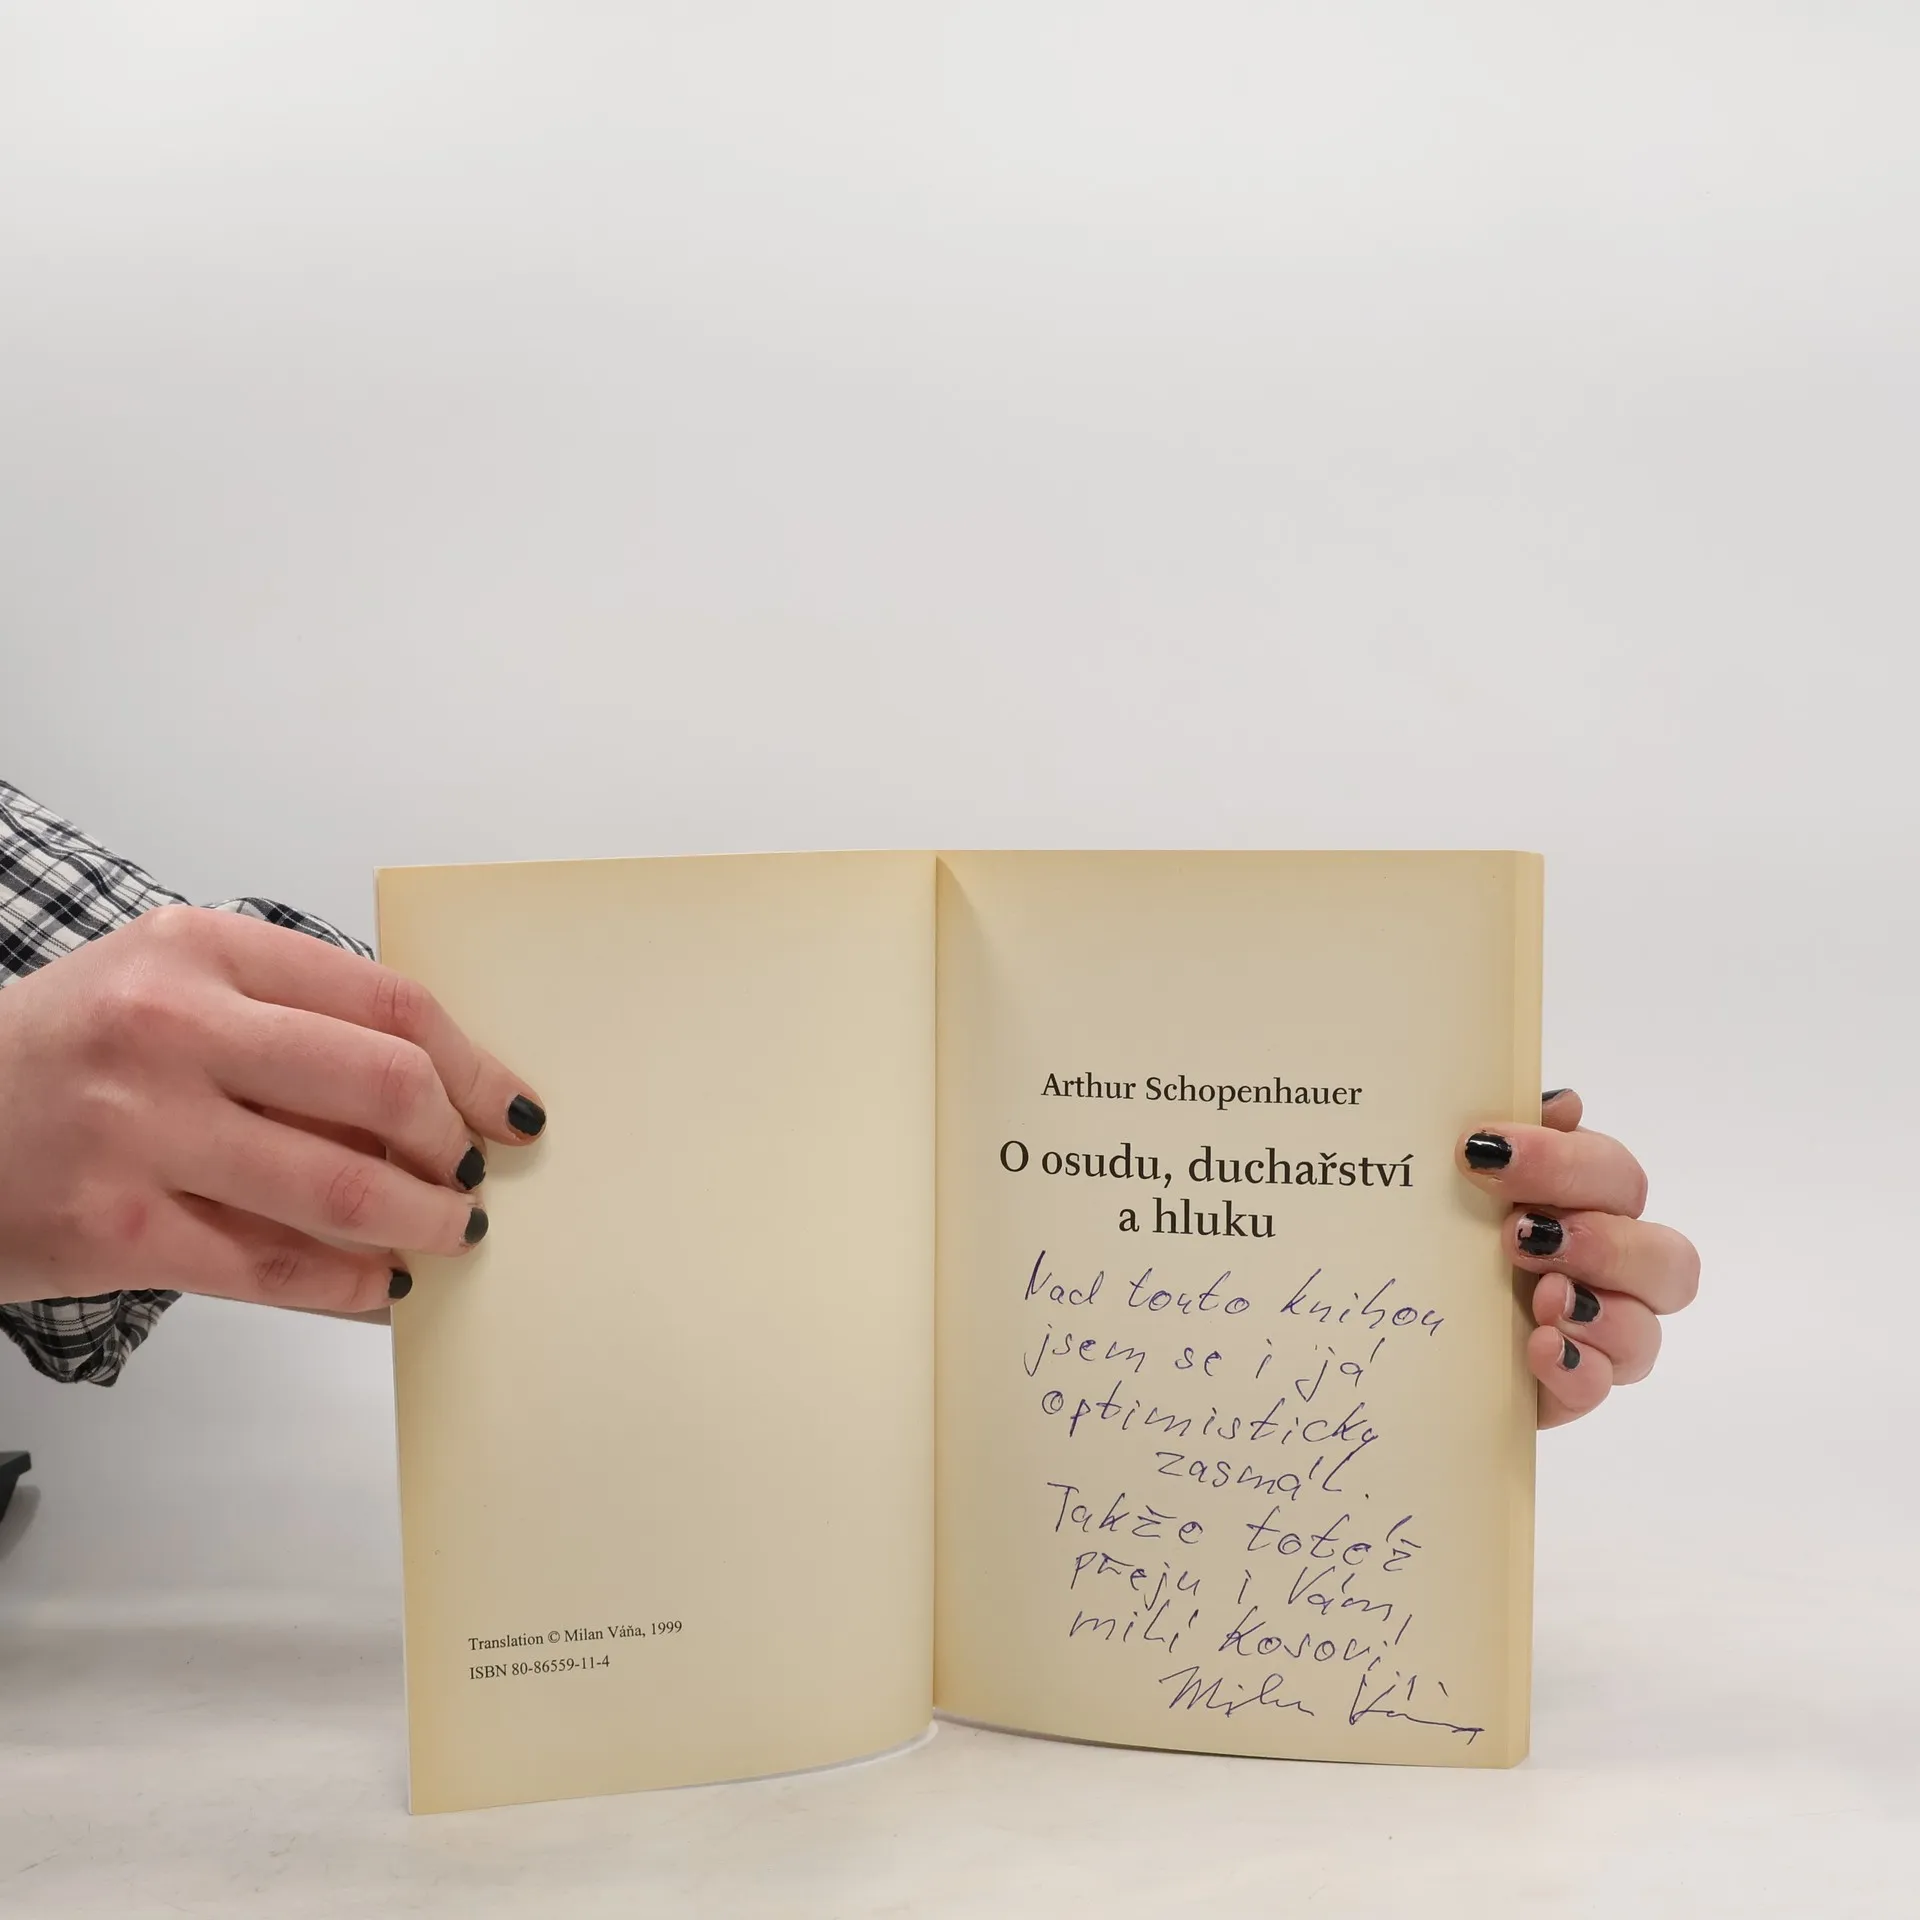 Translation © Milan Váňa, 1999
ISBN 80-86559-11-4
Arthur Schopenhauer
O osudu, duchařství
a hluku
Nad touto knihou
jsem se i já
optimisticky
zasmál.
Takže totéž
přeju i Vám,
milí Kosovi!
Milan Váňa